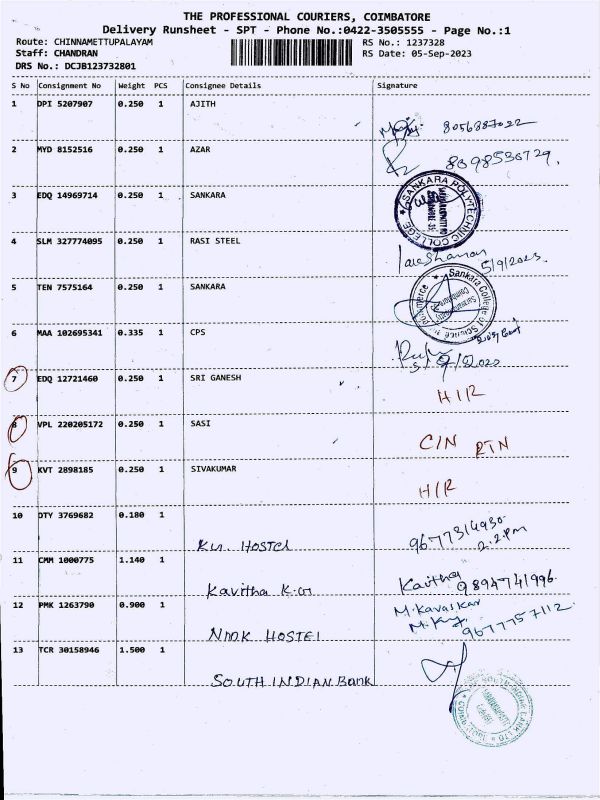 THE PROFESSIONAL COURIERS, COIMBATORE
Delivery Runsheet - SPT - Phone No.:0422-3505555 - Page No.:1
Route: CHINNAMETTUPALAYAM RS No.: 1237328
Staff: CHANDRAN RS Date: 05-Sep-2023
DRS No.: DCJB123732801
S No Consignment No Weight PCS Consignee Details Signature
1 DPI 5207907 0.250 1 AJITH
8056387022
2 MYD 8152516 0.250 1 AZAR
8098530729.
3 EDQ 14969714 0.250 1 SANKARA
SANKARA POLYTECHNIC COLLEGE
4 SLM 327774095 0.250 1 RASI STEEL
5/9/2023.
5 TEN 7575164 0.250 1 SANKARA
Sankara College of Science
6 MAA 102695341 0.335 1 CPS
7 EDQ 12721460 0.250 1 SRI GANESH
H/R
8 VPL 220205172 0.250 1 SASI
C/N RTN
9 KVT 2898185 0.250 1 SIVAKUMAR
H/R
10 DTY 3769682 0.180 1
HOSTEL 9677314930.
2.2 PM
11 CMM 1000775 1.140 1
Kavitha K.G Kavitha 9894741996.
12 PMK 1263790 0.900 1 M. Kavaskar
NMK HOSTEL 9677757112
13 TCR 30158946 1.500 1
SOUTH INDIAN Bank